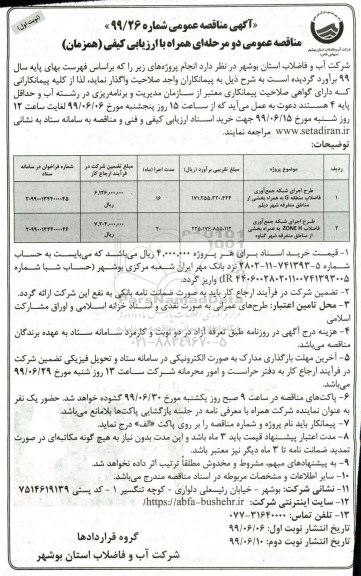 (نوبت اول)
شرکت آب و فاضلاب استان بوشهر
«آگهی مناقصه عمومی شماره ۹۹/۲۶»
مناقصه عمومی دو مرحله‌ای همراه با ارزیابی کیفی (همزمان)
شرکت آب و فاضلاب استان بوشهر در نظر دارد انجام پروژه‌های زیر را که براساس فهرست بهای پایه سال
۹۹ برآورد گردیده است به شرح ذیل به پیمانکاران واجد صلاحیت واگذار نماید، لذا از کلیه پیمانکارانی
که دارای گواهی صلاحیت پیمانکاری معتبر از سازمان مدیریت و برنامه‌ریزی در رشته آب و حداقل
پایه ۴ هستند دعوت به عمل می‌آید که از ساعت ۱۵ روز پنجشنبه مورخ ۹۹/۰۶/۰۶ لغایت ساعت ۱۲
روز شنبه مورخ ۹۹/۰۶/۱۵ جهت خرید اسناد ارزیابی کیفی و فنی و مناقصه به سامانه ستاد به نشانی
www.setadiran.ir مراجعه نمایند.
توضیحات:
ردیف موضوع پروژه مبلغ تقریبی برآورد (ریال) مدت اجرا (ماه) مبلغ تضمین شرکت در فرآیند ارجاع کار شماره فراخوان در سامانه ستاد
۱ طرح اجرای شبکه جمع‌آوری فاضلاب منطقه G به همراه بخشی از مناطق متفرقه شهر دیلم ۱۷۱،۲۵۵،۳۲۰،۴۴۴ ۱۶ ریال
۲ طرح اجرای شبکه جمع‌آوری فاضلاب ZONE H به همراه بخشی از مناطق متفرقه شهر گناوه ۲۰ ریال
۱- قیمت خرید اسناد برای هر پروژه ۴،۰۰۰،۰۰۰ ریال می‌باشد که می‌بایست به حساب
شماره ۵-۷۴۱۳۹۳-۱۱-۲۸۰۲ نزد بانک مهر ایران شعبه مرکزی بوشهر (حساب شبا شماره
واریز گردد.
۲- تضمین شرکت در فرآیند ارجاع کار باید به صورت ضمانت نامه بانکی به نفع این شرکت ارائه گردد.
۳- محل تامین اعتبار: طرح‌های عمرانی به صورت نقدی و اسناد خزانه اسلامی و اوراق مشارکت
اسلامی
۴- هزینه درج آگهی در روزنامه طبق تعرفه آزاد در دو نوبت و کارمزد سامانه ستاد به عهده برندگان
مناقصه می‌باشد.
۵- آخرین مهلت بارگذاری مدارک به صورت الکترونیکی در سامانه ستاد و تحویل فیزیکی تضمین شرکت
در فرآیند ارجاع کار به دفتر حراست و امور محرمانه شرکت ساعت ۱۳ روز شنبه مورخ ۹۹/۰۶/۲۹
می‌باشد.
۶- پاکت‌های مناقصه در ساعت ۹ صبح روز یکشنبه مورخ ۹۹/۰۶/۳۰ گشوده خواهد شد. حضور یک نفر
به عنوان نماینده شرکت همراه با معرفی نامه در جلسه بازگشایی پاکت‌ها بلامانع می‌باشد.
۷- پیمانکار باید نام پروژه و شماره مناقصه را بر روی پاکت «الف» درج نماید.
۸- مدت اعتبار پیشنهاد قیمت باید ۳ ماه باشد و این مدت بدون نیاز به هیچ گونه مکاتبه‌ای در صورت
تمدید ضمانت نامه تا ۳ ماه دیگر نیز معتبر باشد.
۹- به پیشنهادهای مبهم، مشروط و مخدوش مطلقاً ترتیب اثر داده نخواهد شد.
۱۰- سایر اطلاعات و مشخصات مربوطه در اسناد مناقصه مندرج می‌باشد.
۱۱- نشانی شرکت: بوشهر - خیابان رئیسعلی دلواری - کوچه تنگسیر ۱ - کد پستی ۷۵۱۴۶۱۹۱۳۹
۱۲- سایت اینترنتی شرکت: https://abfa-bushehr.ir/
۱۳- تلفن تماس: ۳۱۶۴۰۰۰۰-۰۷۷
تاریخ انتشار نوبت اول: ۹۹/۰۶/۰۶
تاریخ انتشار نوبت دوم: ۹۹/۰۶/۱۰
گروه قراردادها
شرکت آب و فاضلاب استان بوشهر